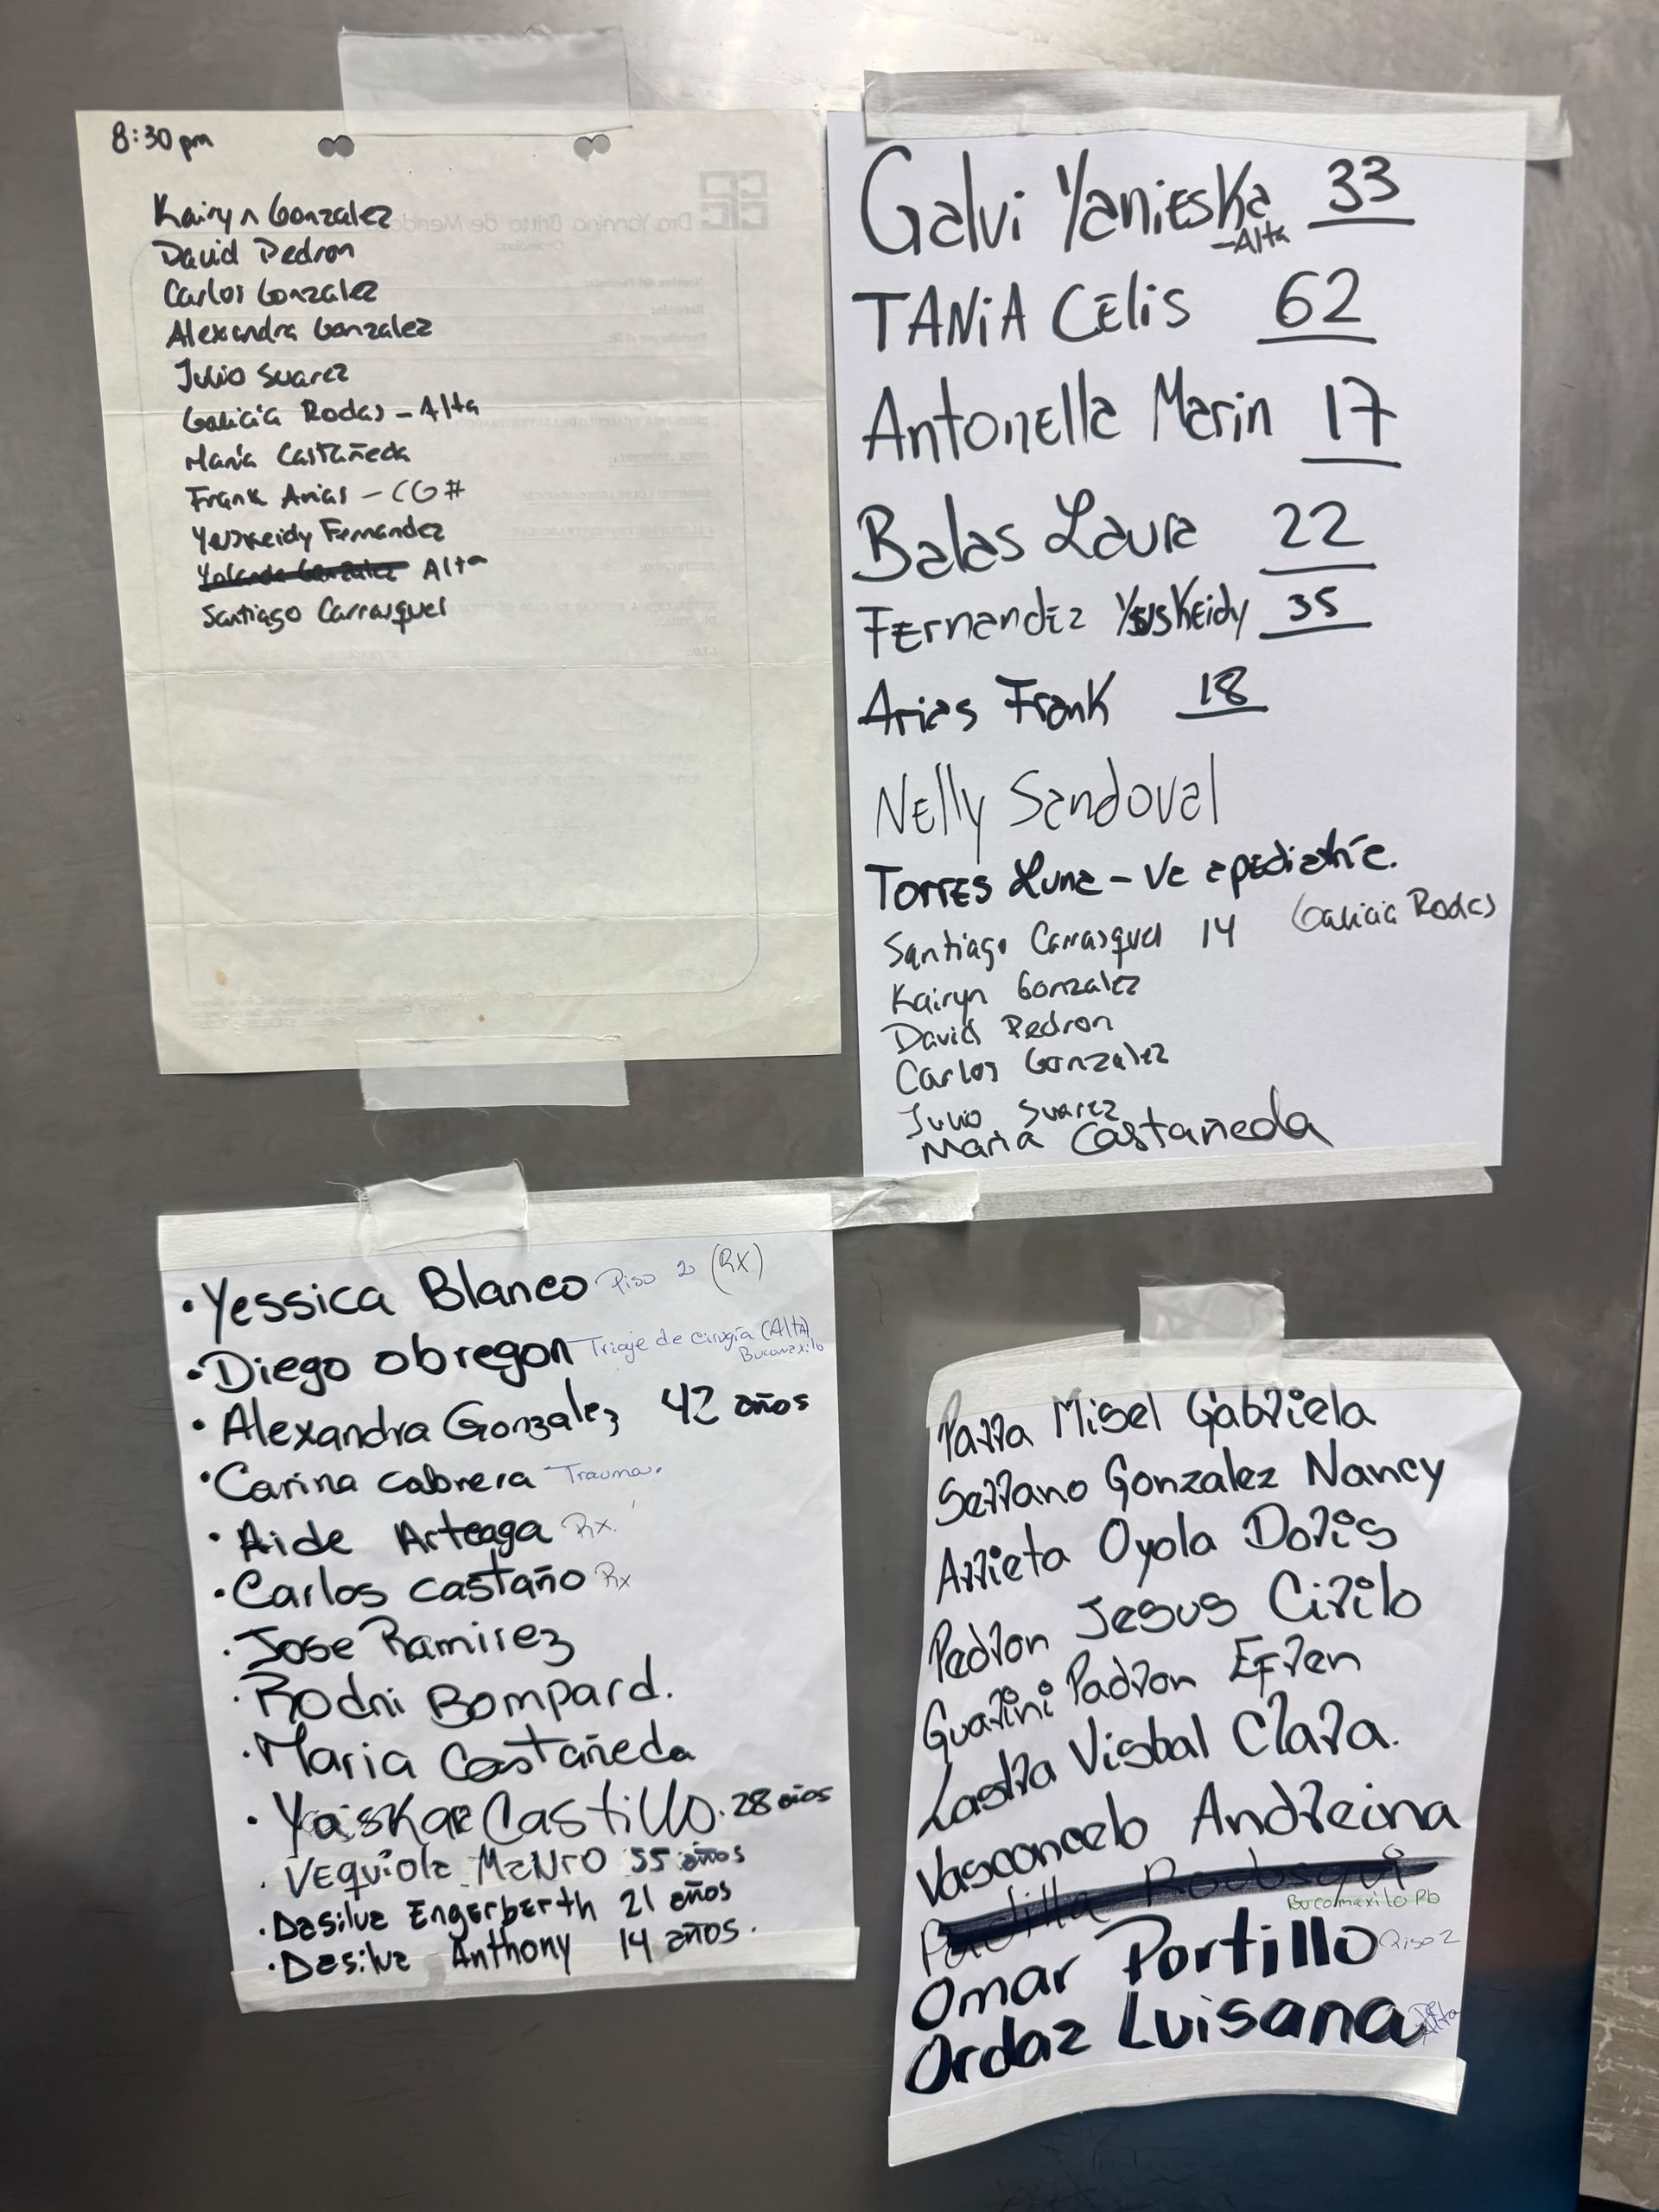 8:30 pm
Kairyn Gonzalez
David Pedron
Carlos Gonzalez
Alexandra Gonzalez
Julio Suarez
Galicia Rodas - Alta
María Castañeda
Frank Arias - CG#
Yeuskeidy Fernandez
Yolanda Gonzalez Alta
Santiago Carrasquel
Galvi Yanieska 33
- Alta
TANiA CElis 62
Antonella Marin 17
Balas Laura 22
Fernandez Yeuskeidy 35
Arias Frank 18
Nelly Sandoval
Torres Luna - Va a pediatría.
Santiago Carrasquel 14 Galicia Rodas
Kairyn Gonzalez
David Pedron
Carlos Gonzalez
Julio Suarez
Maria Castañeda
• Yessica Blanco Piso 2 (Rx)
• Diego obregon Triaje de cirugía (Alta)
Bucomaxilo
• Alexandra Gonzalez 42 años
• Carina cabrera Trauma.
• Aide Arteaga Rx.
• Carlos castaño Rx
• Jose Ramirez
• Rodni Bompard.
• Maria Castañeda
• Castillo. 28 años
• 55 años
• Dasilva Engerberth 21 años
• Dasilva Anthony 14 años.
Parra Misel Gabriela
Serrano Gonzalez Nancy
Arrieta Oyola Doris
Pedron Jesus Cirilo
Guarini Padron Efren
Lastra Visbal Clara.
Vasconcelo Andreina
Padilla
Bucomaxilo Pb
Omar Portillo Piso 2
Ordaz Luisana